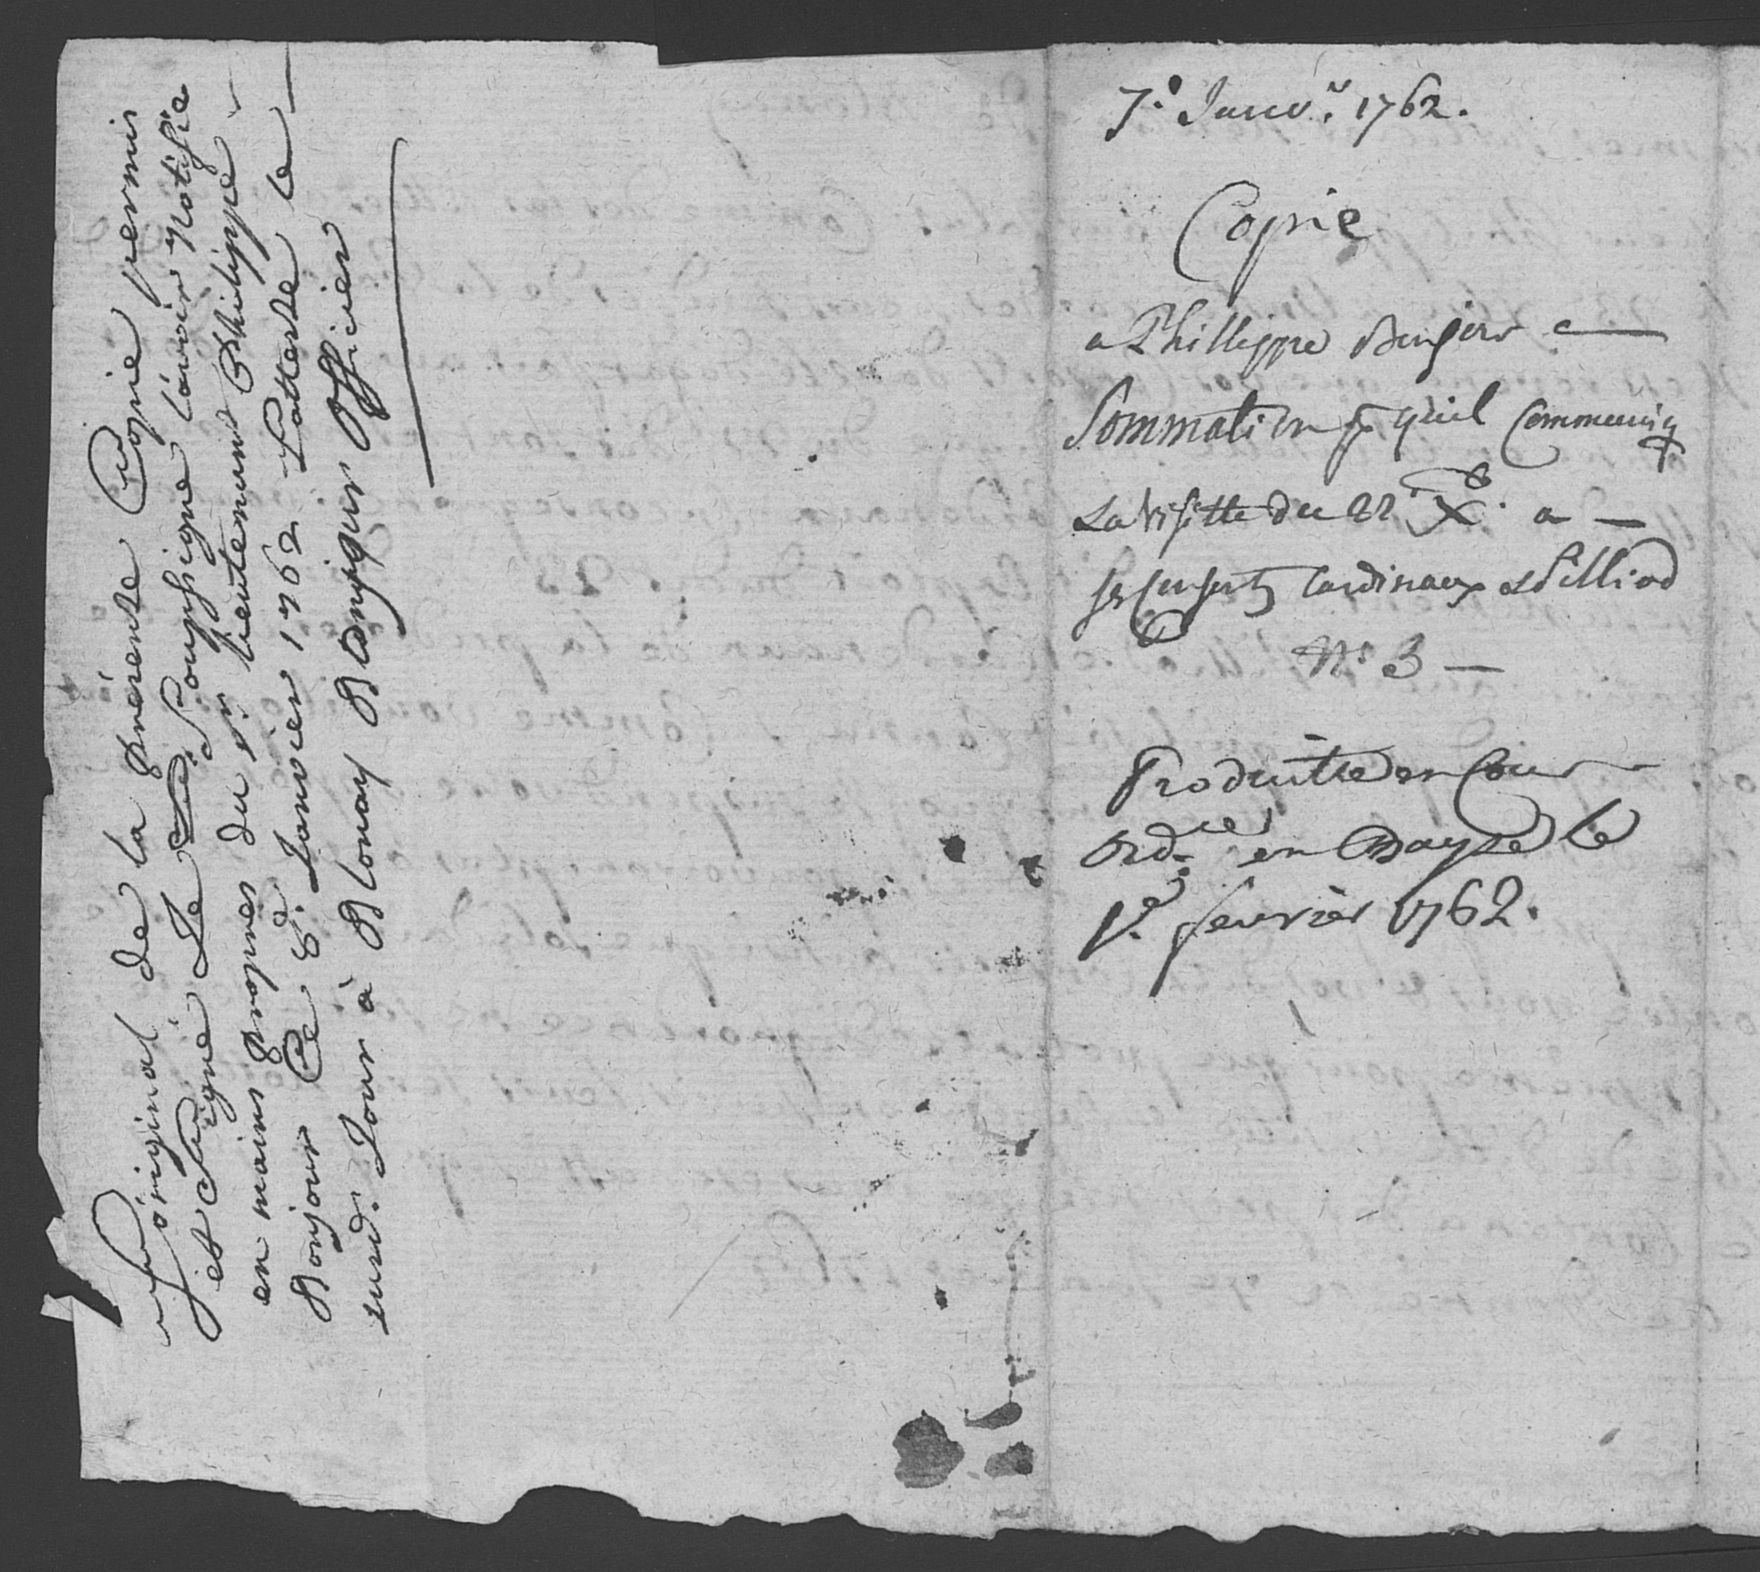 L'original de la présente Copie permis
et Signé Je Soussigné l'avoir Notifié
en mains propres du Sr. Lieutenant Philippe
Bonjour Ce 8e. Janvier 1762 L'atteste le
susd. Jour à Blonay Bonjour Officier
7e. Janvr. 1762.
Copie
a Phillippe Bonjour
Sommation pr quil Communiq
La Visitte du 22e Xb. a
ses Consorts Cardinaux & Pilliod
No. 3
Produitte en Cour
Ordre. en Bayse le
1e. fevrier 1762.